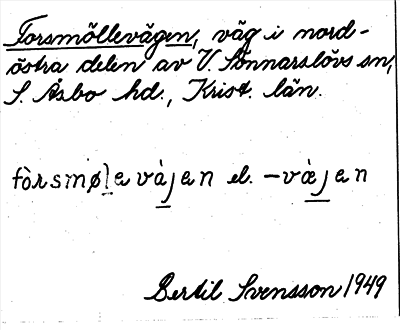 Forsmöllevägen, väg i nord-
östra delen av V. Sönnarslövs sn,
S. Åsbo hd., Krist. län.
fòrsmø̀lavàjan el. -væ̀jan
Bertil Svensson 1949